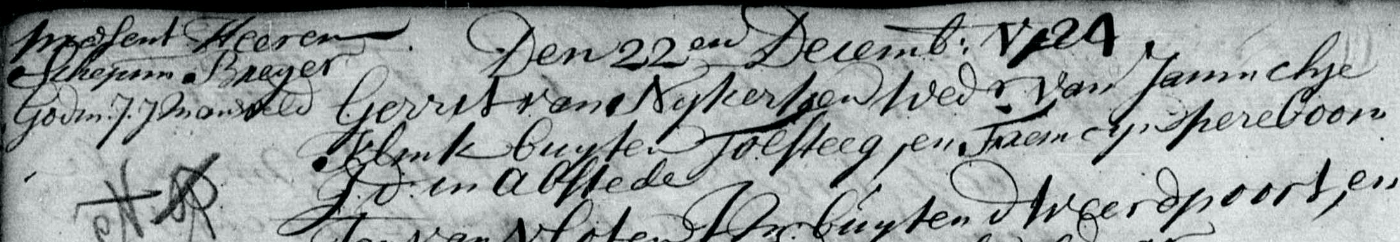 present Heeren
Schepen Breyer
Godin. J. J. Mansveld
Den 22en Decemb: 1724
Gerrit van Nykerken wedr van Jannichje
Vlink buyten Tolsteeg, en Pereboom
J.D. in Abstede
van Vloten Jr. buyten d Weerdpoort, en